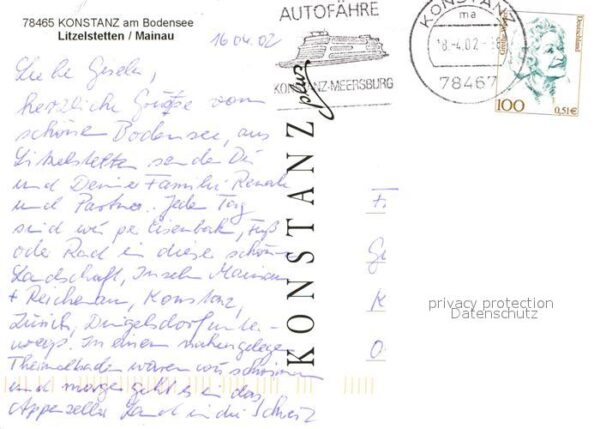 78465 KONSTANZ am Bodensee
Litzelstetten / Mainau
16.04.02
Liebe Gisela,
herzliche Grüße vom
schönen Bodensee, aus
Litzelstetten senden Dir
und Deiner Familie Renate
und Partner. Jeden Tag
sind wir per Eisenbah, Fuß
oder Rad in dieser schönen
Landschaft, Inseln Mainau
+ Reichenau, Konstanz,
Zürich, Dingelsdorf unter-
wegs. In einem nahegelegen
Thermalbade waren wir schwimmen
und morgen geht es in das
Appenzeller Land in die Schweiz
KONSTANZ
plus
AUTOFÄHRE
KONSTANZ-MEERSBURG
KONSTANZ
ma
18.-4.02
78467
Deutschland
100
0,51€
F.
G
K
O
privacy protection
Datenschutz